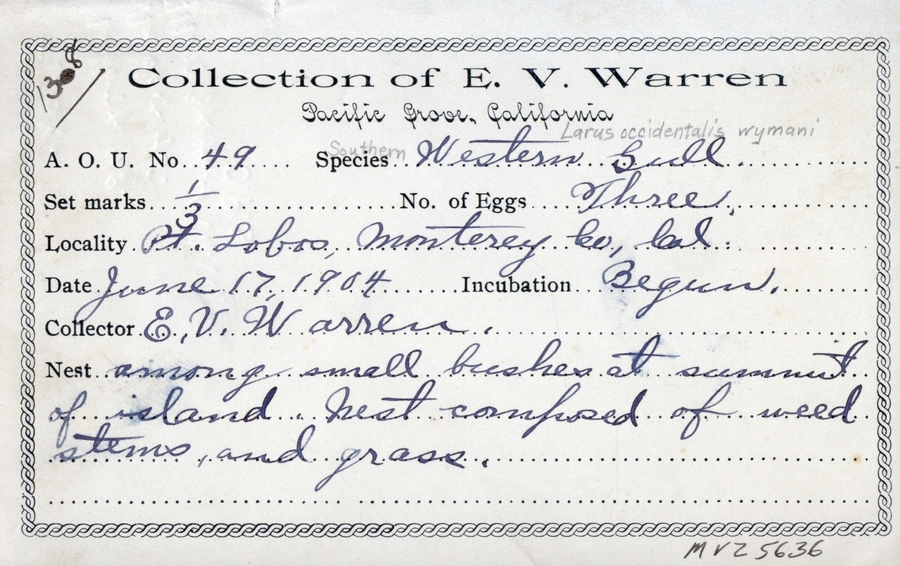 308
Collection of E. V. Warren
Pacific Grove, California
Larus occidentalis wymani
A. O. U. No. 49 Species Southern Western Gull
Set marks 1/3 No. of Eggs Three.
Locality Pt. Lobos, Monterey Co, Cal.
Date June 17, 1904 Incubation Begun.
Collector E. V. Warren.
Nest among small bushes at summit
of island. Nest composed of weed
stems, and grass.
MVZ 5636